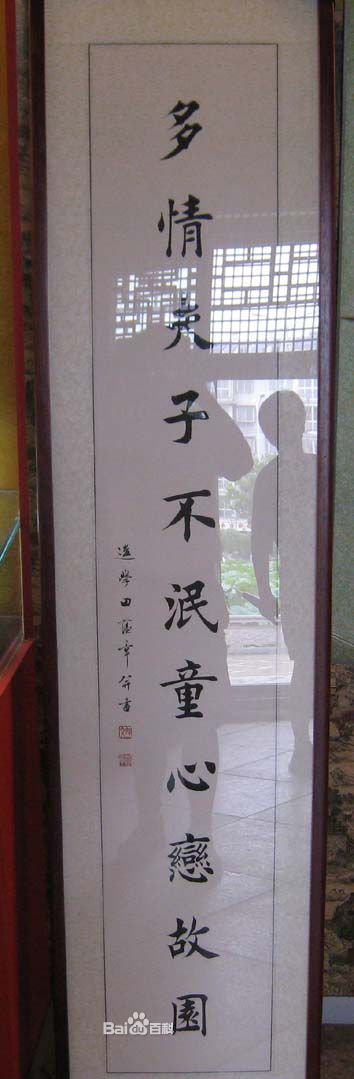 多情夫子不泯童心戀故園
後學田蘊章并書
Bai百科